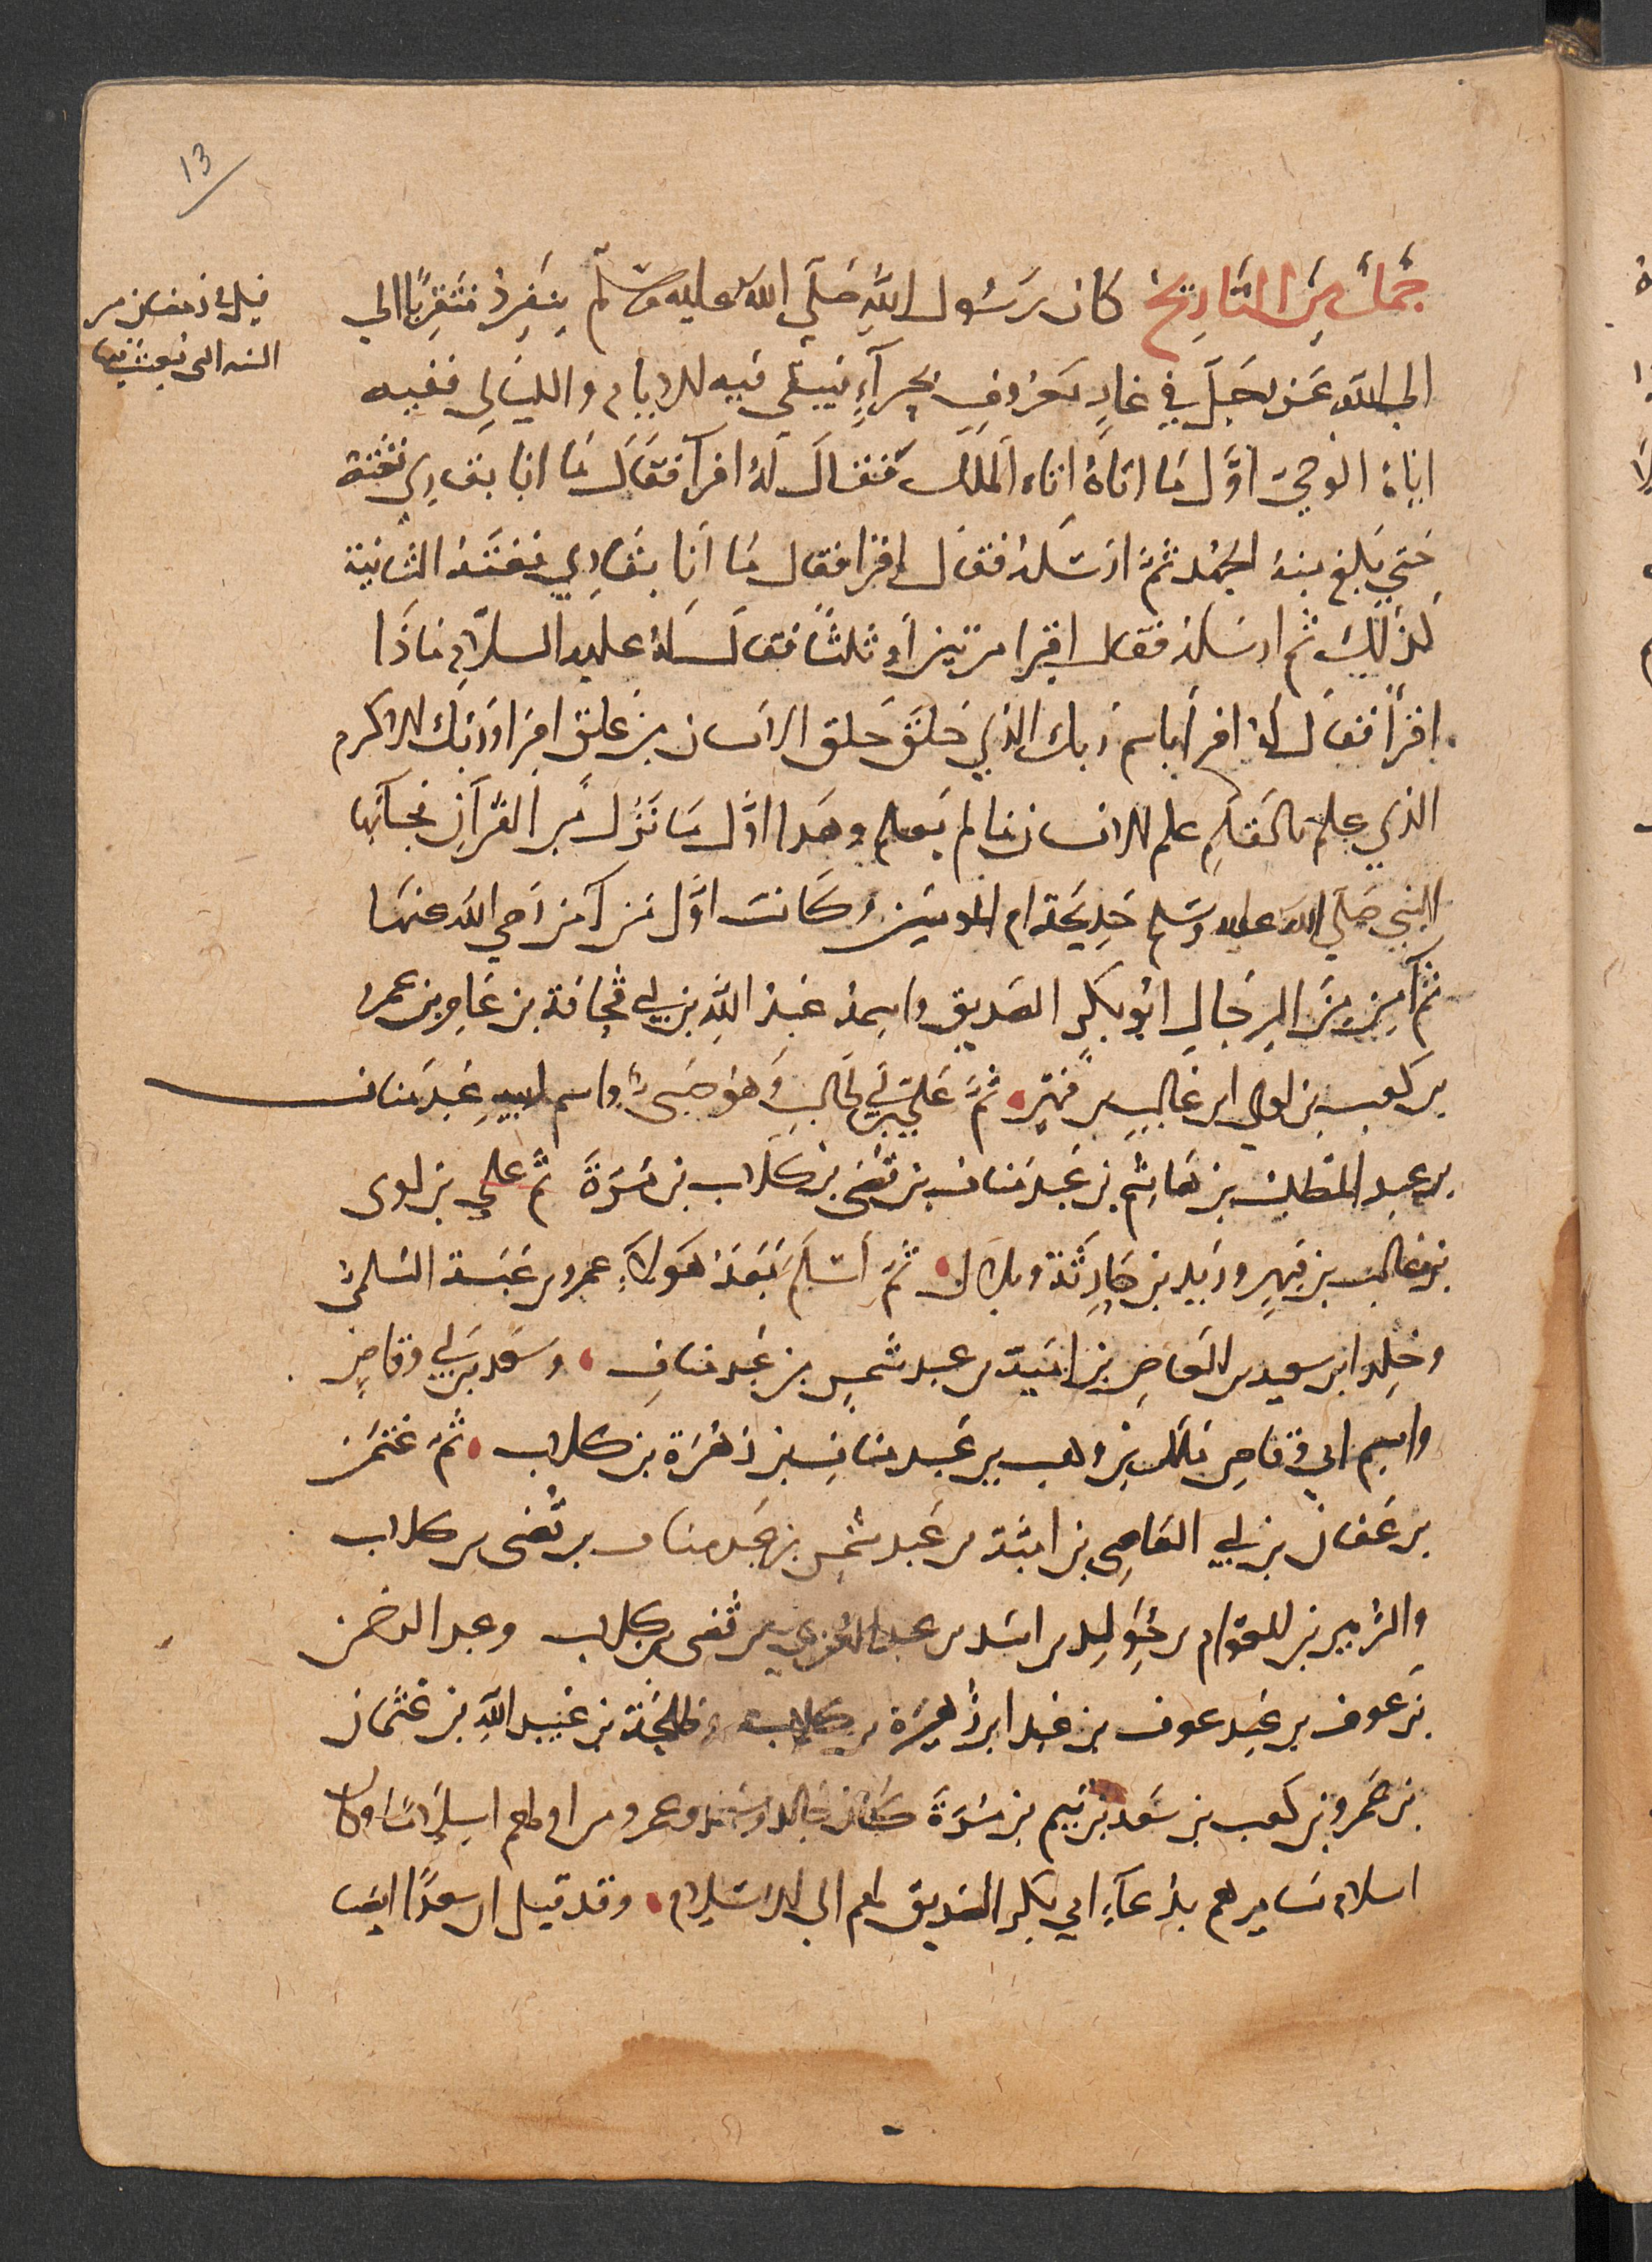 13
جمل من التاريخ كان رسول الله صلى الله عليه وسلم ينفرد متقربا الى
الى الله عز وجل في غار يعرف بحرآء فيبقى فيه الايام والليالي ففيه
اتاه الوحي اول ما اتاه اتاه الملك فقال له اقرا فقال ما انا بقاري فغته
حتي بلغ منه الجهد ثم ارسله فقال اقرا فقال ما انا بقاري فغته الثانية
كذلك ثم ارسله فقال اقرا مرتين او ثلثا فقال له عليه السلام ماذا
اقرأ فقال له اقرأ باسم ربك الذي خلق خلق الانسان من علق اقرا وربك الاكرم
الذي علم بالقلم علم الانسان ما لم يعلم وهذا اول ما نزل من القرآن فجآ بها
النبي صلى الله عليه وسلم خديجة ام المومنين وكانت اول من آمن رضي الله عنها
ثم آمن من الرجال ابو بكر الصديق واسمه عبد الله بن ابي قحافة بن عامر بن عمرو
بن كعب بن لوي ابن غالب بن فهر ثم علي بن ابي طالب وهو صبي واسم ابيه عبد مناف
بن عبد المطلب بن هاشم بن عبد مناف بن قصي بن كلاب بن مرة ثم علي بن لوى
بن غالب بن فهر وزيد بن حارثة وبلال ثم اسلم بعد هولاء عمرو بن عبسة السلمي
وخلد ابن سعيد بن العاص بن امية بن عبد شمس بن عبد مناف وسعد بن ابي وقاص
واسم ابي وقاص ملك بن وهب بن عبد مناف بن زهرة بن كلاب ثم عثمن
بن عفان بن ابي العاصي بن امية بن عبد شمس بن عبد مناف بن قصى بن كلاب
والزبير بن العوام بن خويلد بن اسد بن عبد العزي بن قصى بن كلاب وعبد الرحمن
بن عوف بن عبد عوف بن عبد ابن زهرة بن كلاب وطلحة بن عبيد الله بن عثمان
بن عمرو بن كعب بن سعد بن تيم بن مرة كان خالد وسعد وعمرو من اولهم اسلاما وكان
اسلام سايرهم بدعآء ابي بكر الصديق لهم الى الاسلام وقد قيل ان سعدا ايضا
قيل في رمضان من
السنه التي بعث فيها